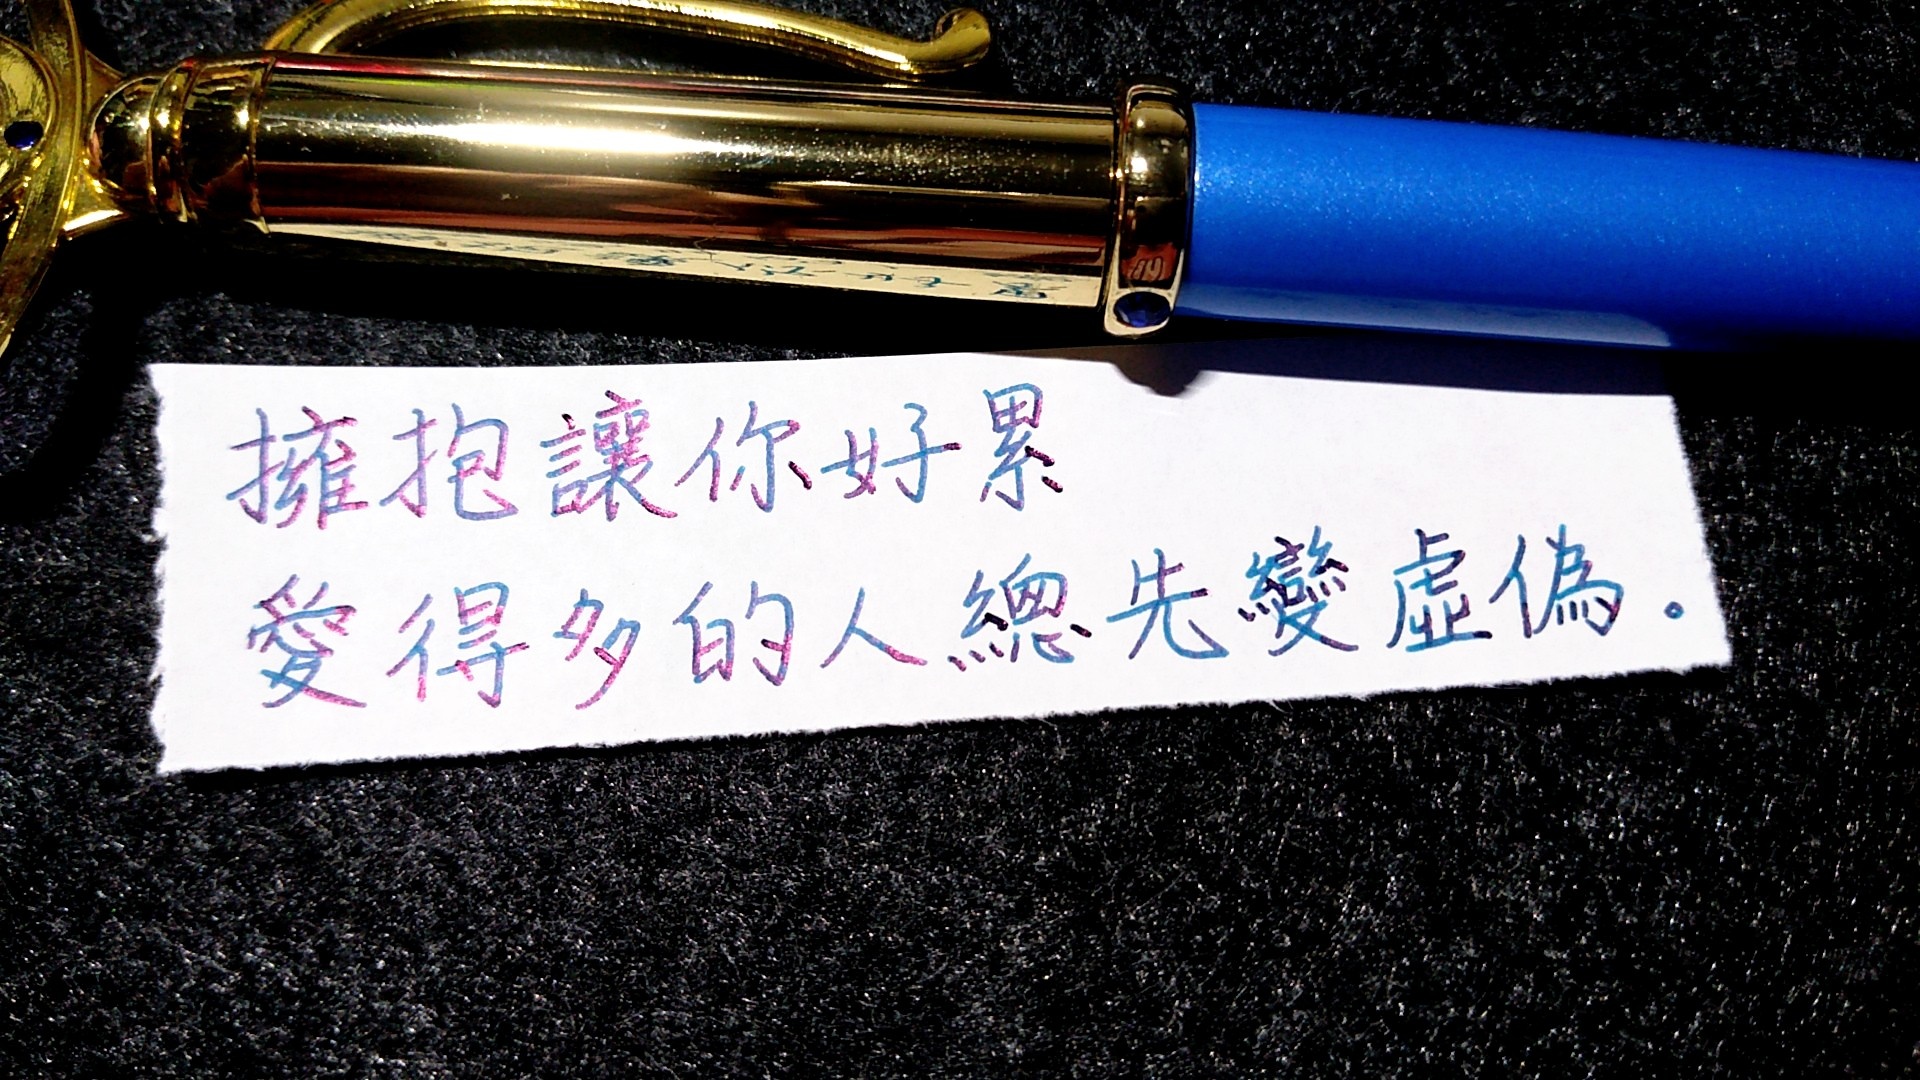 擁抱讓你好累
愛得多的人總先變虛偽.